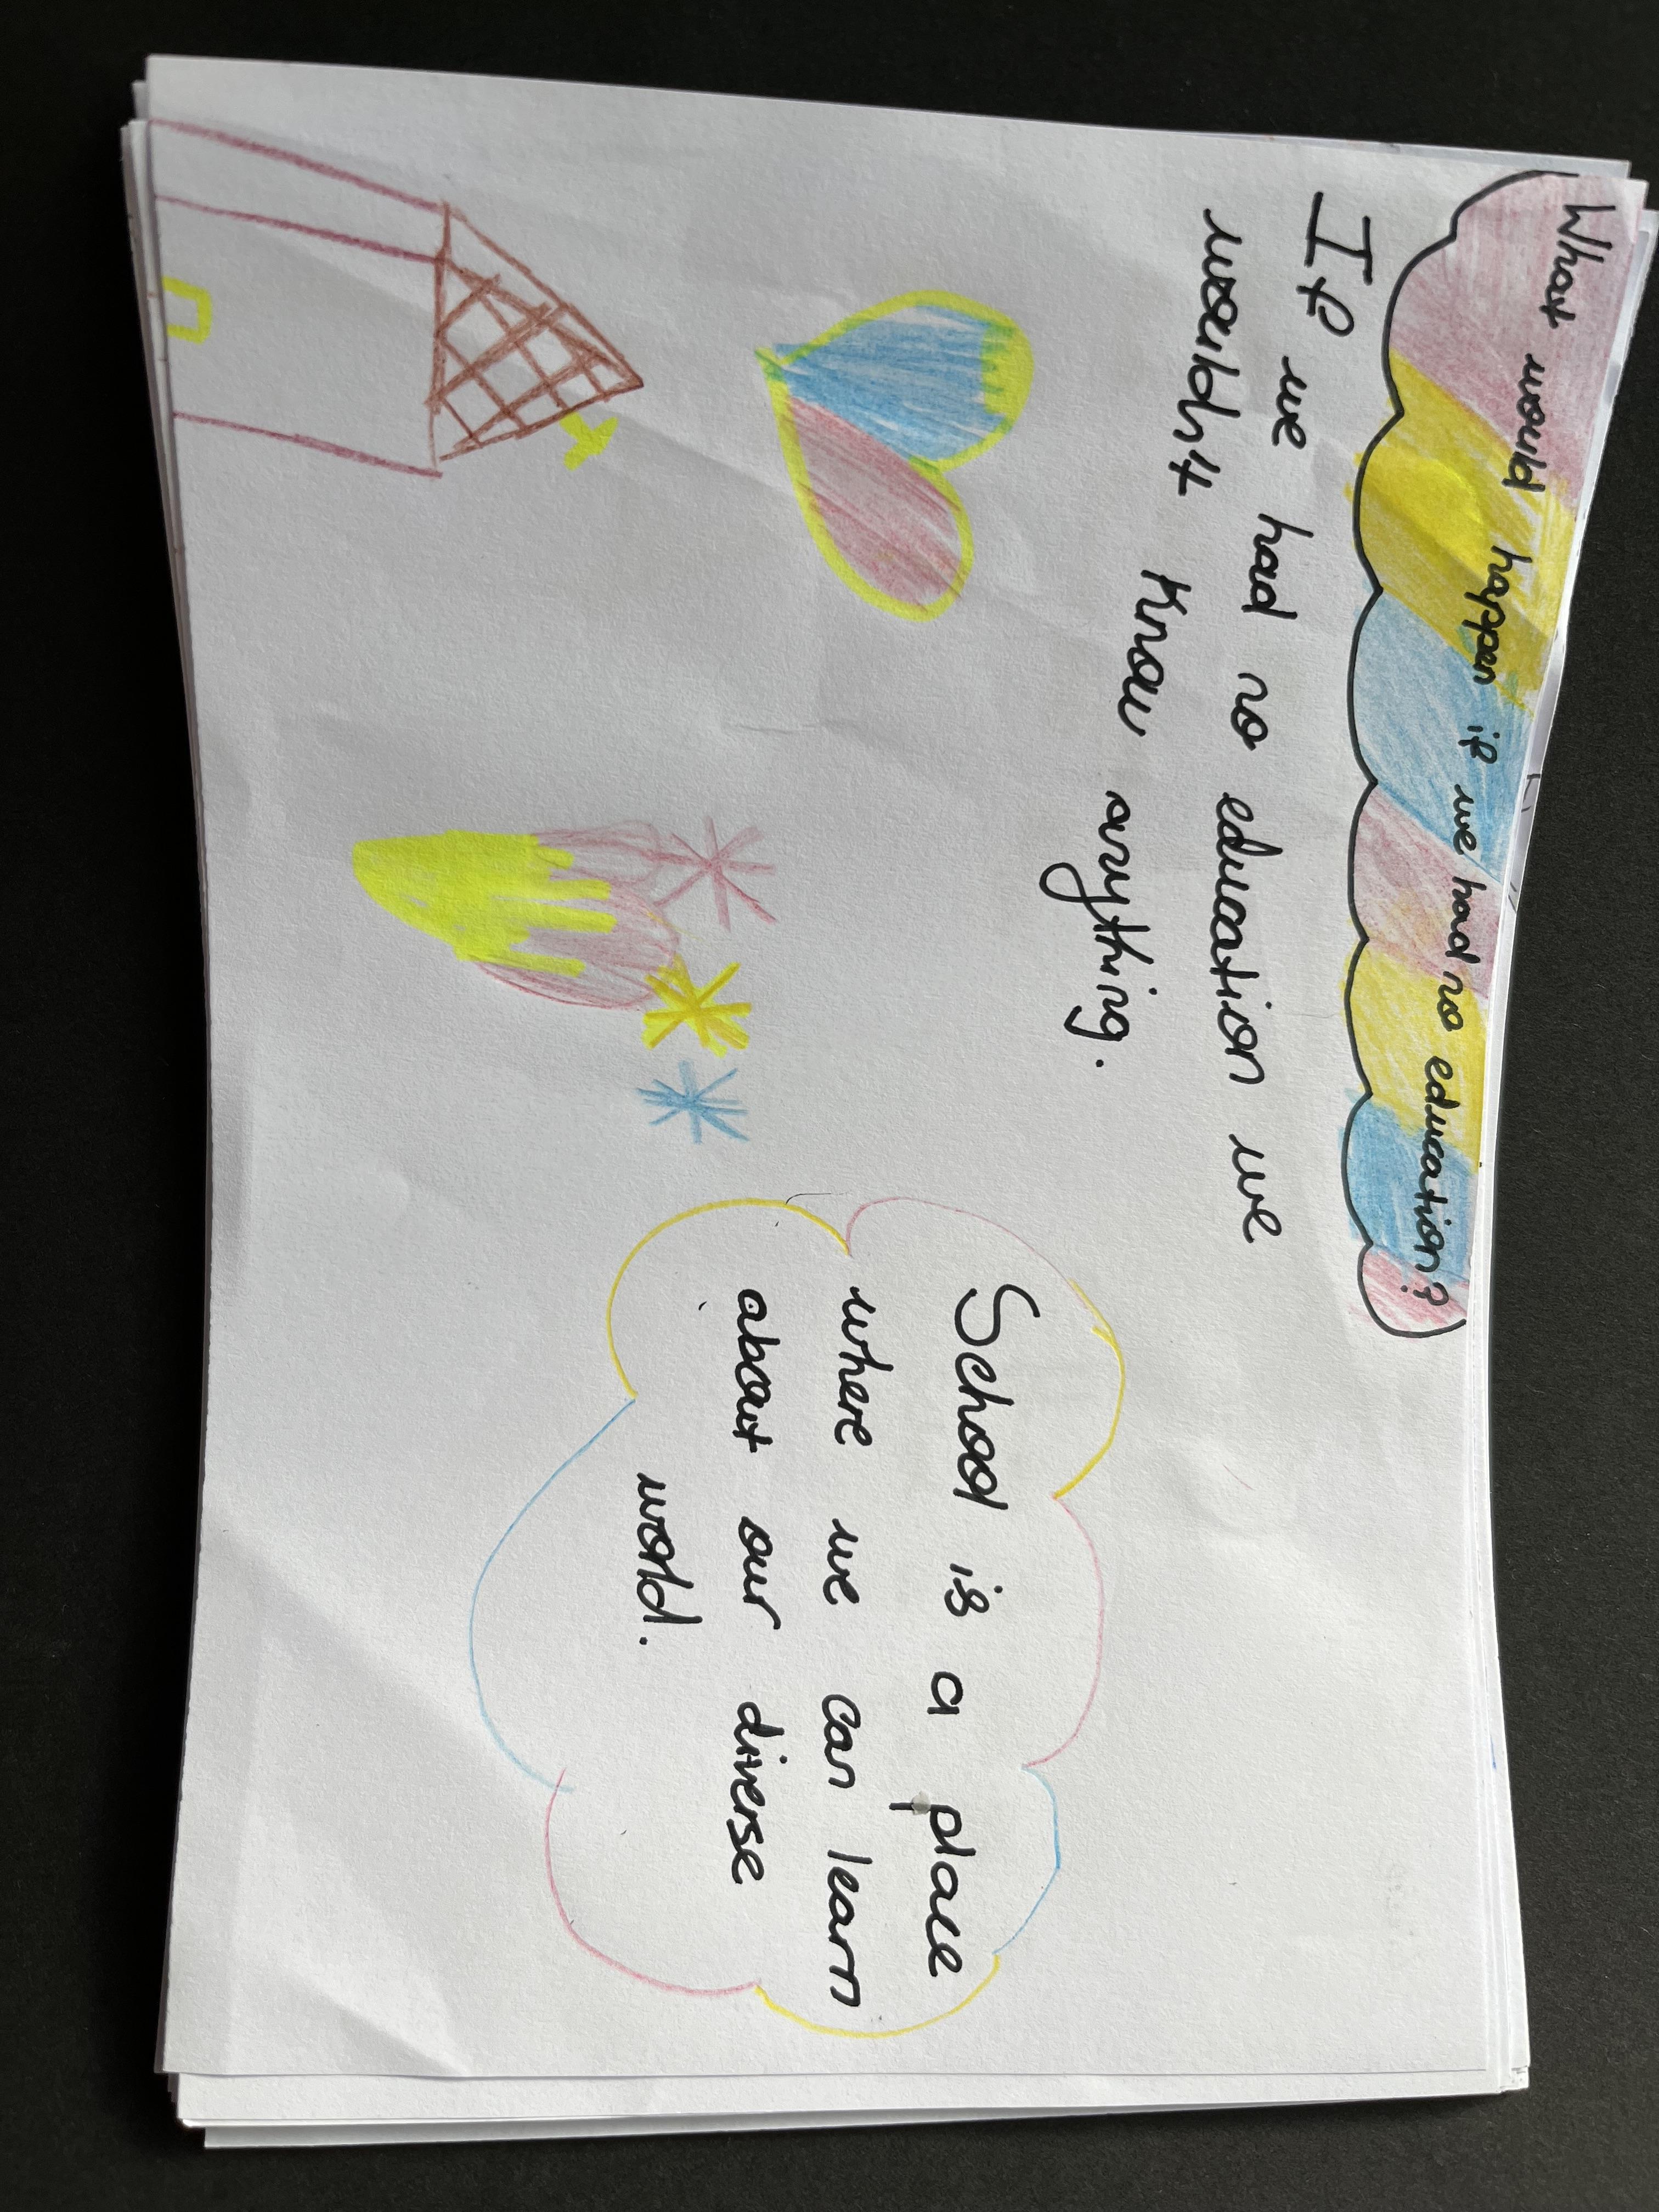 What would happen if we had no education?
If we had no education we
wouldn't know anything.
School is a place
where we can learn
about our diverse
world.